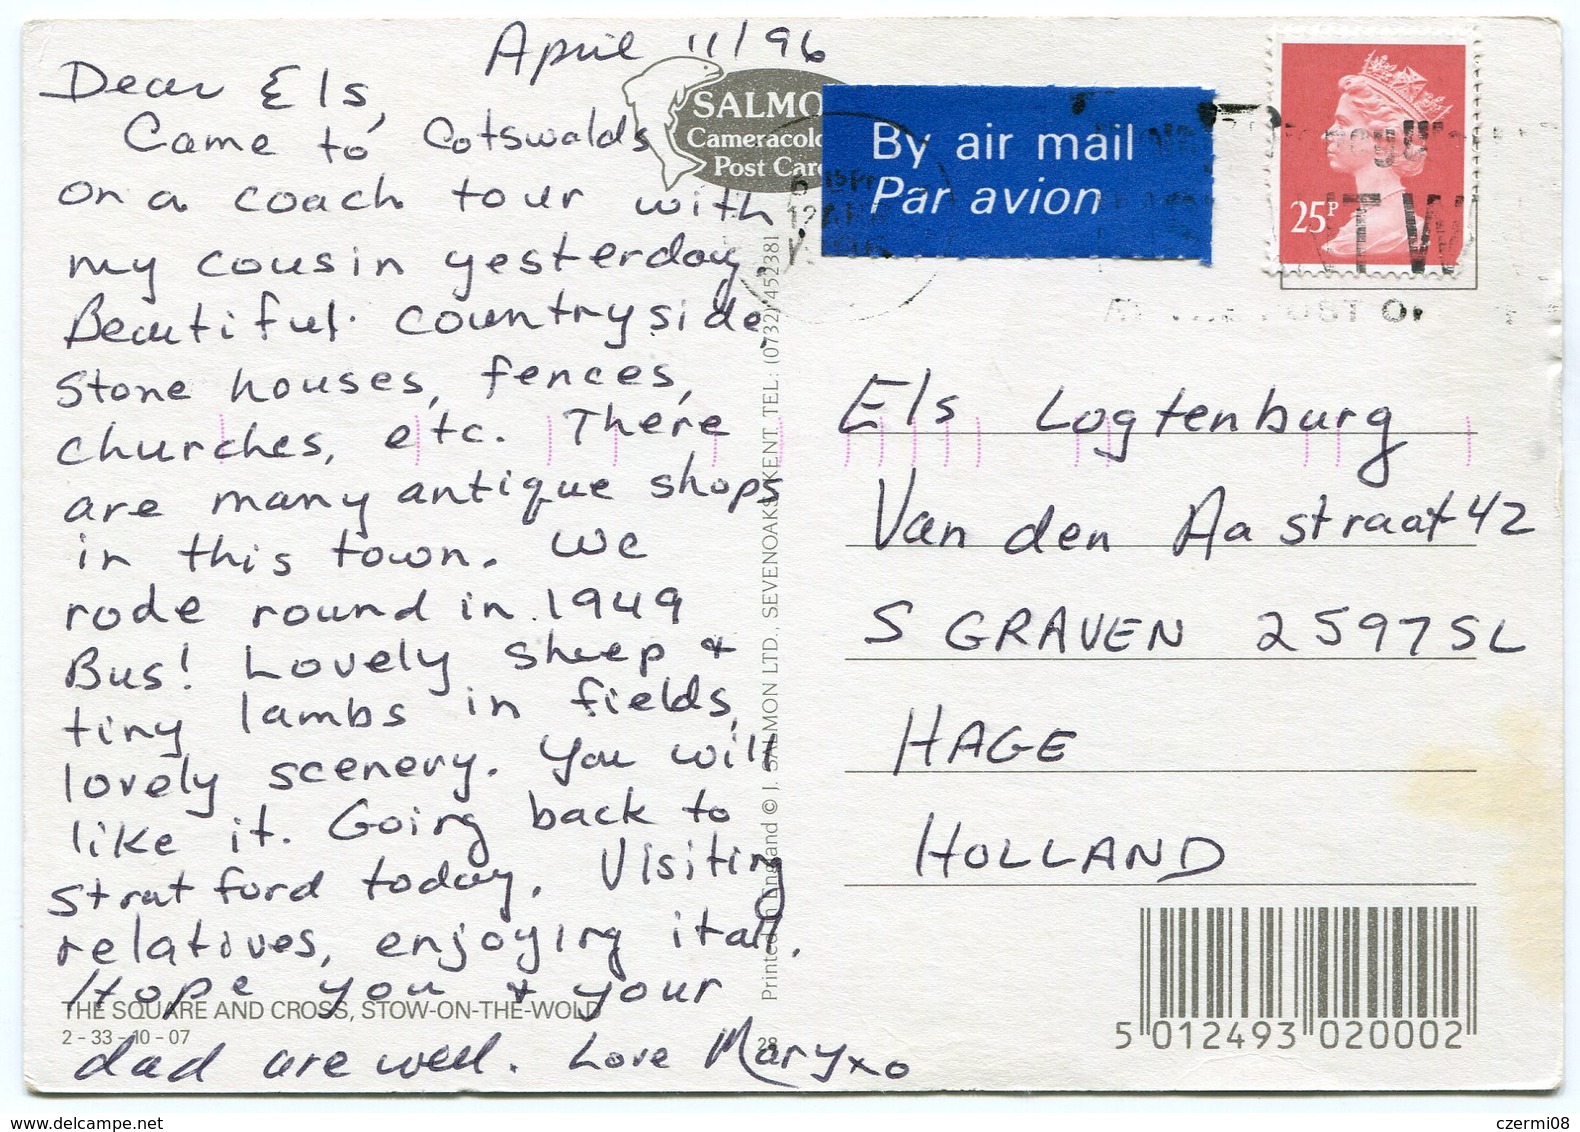 April 11/96
Dear Els,
Came to Cotswalds
on a coach tour with
my cousin yesterday.
Beautiful countryside,
stone houses, fences,
churches, etc. There
are many antique shops
in this town. We
rode round in 1949
Bus! Lovely sheep +
tiny lambs in fields,
lovely scenery. You will
like it. Going back to
Stratford today. Visiting
relatives, enjoying it all.
Hope you & your
dad are well. Love Mary xo
THE SQUARE AND CROSS, STOW-ON-THE-WOLD
2 - 33 - 10 - 07
28
SALMO
Cameracolo
Post Card
Printed in England © J. SALMON LTD., SEVENOAKS, KENT, TEL: (0732) 452381
By air mail
Par avion
25P
Els Logtenburg
Van den Aa straat 42
S GRAVEN 2597SL
HAGE
HOLLAND
5 012493 020002
www.delcampe.net
czermi08